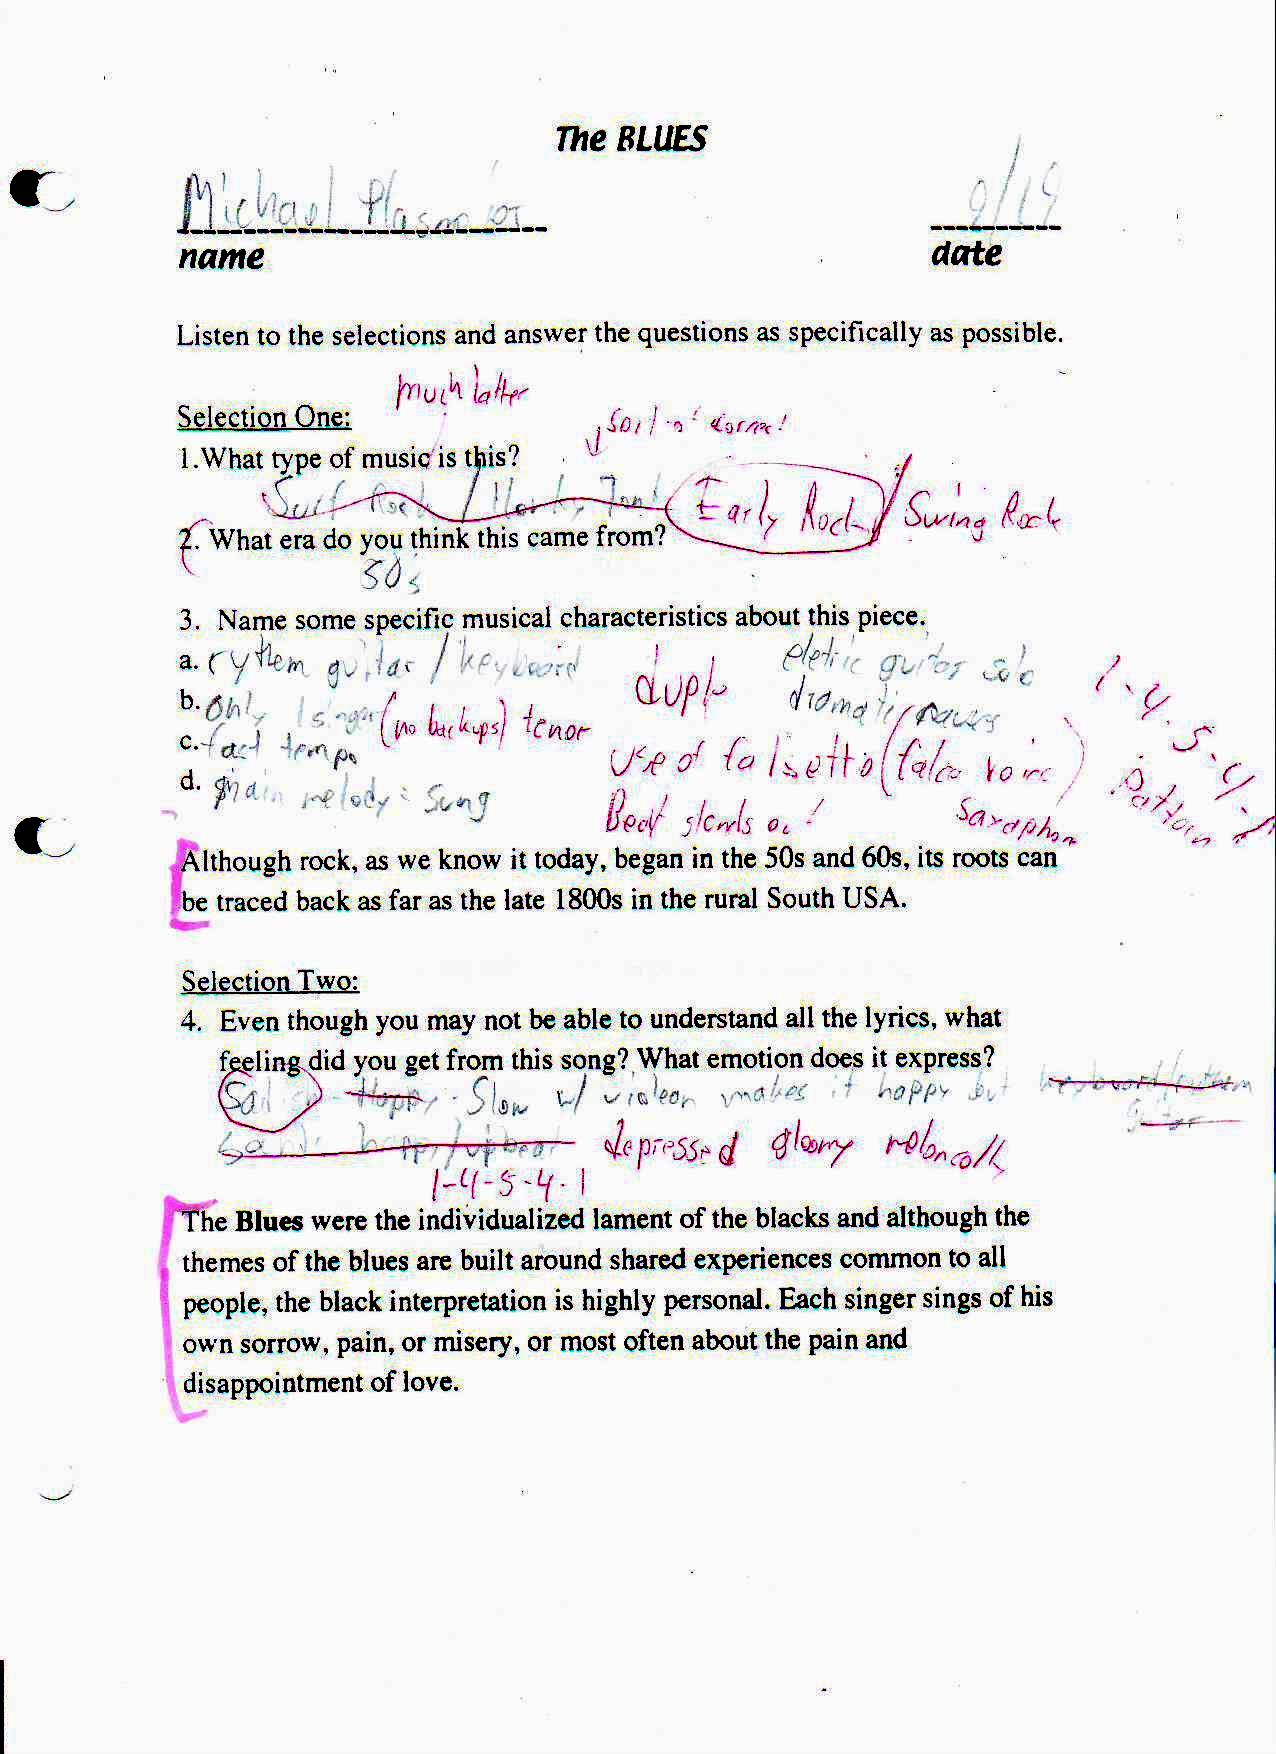 The BLUES
Michael 9/19
name date
Listen to the selections and answer the questions as specifically as possible.
much latter
Selection One:
1.What type of music is this?
Surf Rock / Early Rock / Swing Rock
2. What era do you think this came from?
50's
3. Name some specific musical characteristics about this piece.
a. rythem guitar / keyboard duple eletric guitar solo
b. only 1 singer (no backups) tenor dramatic pauses
c. fast tempo use of falsetto (false voice) 1-4-5-4-1 Pattern
d. main melody: sung
Beat stands out! saxaphon
Although rock, as we know it today, began in the 50s and 60s, its roots can
be traced back as far as the late 1800s in the rural South USA.
Selection Two:
4. Even though you may not be able to understand all the lyrics, what
feeling did you get from this song? What emotion does it express?
Sad Happy Slow w/ violen makes it happy but
depressed gloomy
1-4-5-4-1
The Blues were the individualized lament of the blacks and although the
themes of the blues are built around shared experiences common to all
people, the black interpretation is highly personal. Each singer sings of his
own sorrow, pain, or misery, or most often about the pain and
disappointment of love.